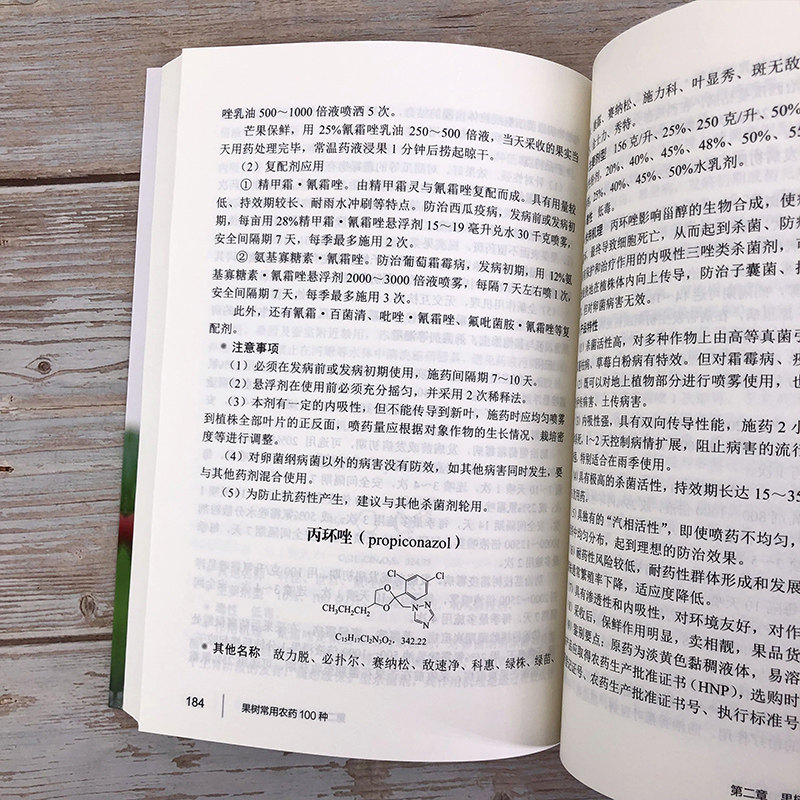 唑乳油 500～1000 倍液喷洒 5 次。
芒果保鲜，用 25%氰霜唑乳油 250～500 倍液，当天采收的果实当
天用药处理完毕，常温药液浸果 1 分钟后捞起晾干。
（2）复配剂应用
① 精甲霜·氰霜唑。由精甲霜灵与氰霜唑复配而成。具有用量较
低、持效期较长、耐雨水冲刷等特点。防治西瓜疫病，发病前或发病初
期，每亩用 28%精甲霜·氰霜唑悬浮剂 15～19 毫升兑水 30 千克喷雾，
安全间隔期 7 天，每季最多施用 2 次。
② 氨基寡糖素·氰霜唑。防治葡萄霜霉病，发病初期，用 12%氨
基寡糖素·氰霜唑悬浮剂 2000～3000 倍液喷雾，每隔 7 天左右喷 1 次，
安全间隔期 7 天，每季最多施用 3 次。
此外，还有氰霜·百菌清、吡唑·氰霜唑、氟吡菌胺·氰霜唑等复
配剂。
● 注意事项
（1）必须在发病前或发病初期使用，施药间隔期 7～10 天。
（2）悬浮剂在使用前必须充分摇匀，并采用 2 次稀释法。
（3）本剂有一定的内吸性，但不能传导到新叶，施药时应均匀喷雾
到植株全部叶片的正反面，喷药量应根据对象作物的生长情况、栽培密
度等进行调整。
（4）对卵菌纲病菌以外的病害没有防效，如其他病害同时发生，要
与其他药剂混合使用。
（5）为防止抗药性产生，建议与其他杀菌剂轮用。
丙环唑（propiconazol）
Cl
Cl
O
O
CH₃CH₂CH₂
N
N
N
C₁₅H₁₇Cl₂N₃O₂，342.22
● 其他名称 敌力脱、必扑尔、赛纳松、敌速净、科惠、绿株、绿苗、
184
果树常用农药 100 种
赛纳松、施力科、叶显秀、斑无敌
士力、秀特。
剂型 156 克/升、25%、250 克/升、50%
20%、40%、45%、48%、50%、55
25%、40%、45%、50%水乳剂。
低毒。
机理 丙环唑影响甾醇的生物合成，使病
最终导致细胞死亡，从而起到杀菌、防病
护和治疗作用的内吸性三唑类杀菌剂，可
地在植株体内向上传导，防治子囊菌、担
但对卵菌病害无效。
产品特性
杀菌活性高，对多种作物上由高等真菌引
草莓白粉病有特效。但对霜霉病、疫
既可以对地上植物部分进行喷雾使用，也
病害、土传病害。
内吸性强，具有双向传导性能，施药 2 小
1～2 天控制病情扩展，阻止病害的流行
特别适合在雨季使用。
具有极高的杀菌活性，持效期长达 15～35
具独有的“汽相活性”，即使喷药不均匀，
中均匀分布，起到理想的防治效果。
耐药性风险较低，耐药性群体形成和发展
常繁殖率下降，适应度降低。
具有渗透性和内吸性，对环境友好，对作
采收后，保鲜作用明显，卖相靓，果品货
鉴别要点：原药为淡黄色黏稠液体，易溶
应取得农药生产批准证书（HNP），选购时
证号、农药生产批准证书号、执行标准号
第二章 果树